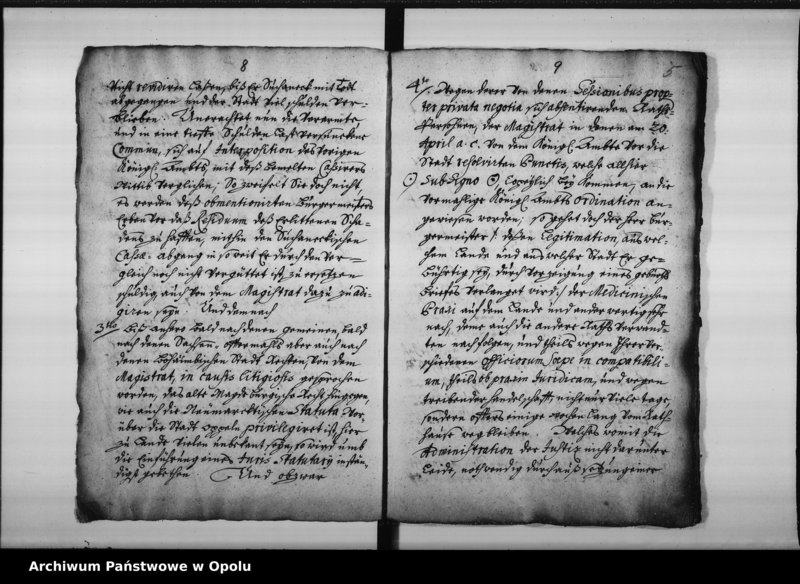 8
nicht rendiren lassen, biß Er Suchaneck mit Todt
abgegangen und der Stadt viel schulden ver-
blieben. Unerachtet nun die Verarmte
und in eine tieffe Schulden Last versunckene
Commun, sich auf Interposition des vorigen
Königl. Ambts, mit deß
So zweifelt Sie doch nicht,
es werden deß obmentionirten Bürgermeisters
Erben vor das Residuum deß Erlittenen Scha-
dens zu hafften, mithin den Suchaneckischen
Cassæ abgang in so weit Er durch den Ver-
gleich noch nicht vergüttet ist, zu ersetzen
schuldig, auch von dem Magistrat dazu zu adi-
giren seyn. Und demnach
3tio bis anhero bald nach denen gemeinen, bald
nach denen Sachsen- offtermahls aber auch nach
denen Böhaimbischen Stadt Rechten, von dem
Magistrat, in causis litigiosis gesprochen
worden, das alte Magdeburgische Recht hingegen,
wie auch die Neumarcktischen Statuta vor,
über die Stadt Oppeln privilegiret ist, hier
zu Lande vielen unbekant seyn, so wird umb
die Einführung eines Juris Statutary instän-
digst gebethen. Und obzwar
9
5
4to Wegen derer von denen Sessionibus prop-
ter privata negotia sich absentirenden Raths
Persohnen, der Magistrat in denen am 20.
April a. c. von dem Königl. Ambte vor die
Stadt resolvirten Punctis, welche allhier
Sub Signo Copeylich bey kommen, an die
vormahlige Königl. Ambts Ordination an-
gewiesen worden; so gehet doch der Herr Bür-
germeister /: dessen Legitimation, aus wel-
chem Lande und aus welcher Stadt Er ge-
bührtig sey, durch Vorzeigung eines geburths
Briefes verlanget wird :/ der Medicinischen
Praxi auf dem Lande und anderwertig sehr
nach, deme auch die andere Raths Verwand-
ten nachfolgen, und theils wegen Ihrer ver-
schiedenen Officiorum sæpe incompatibili-
um, theils ob praxin Juridicam, und wegen
treibender handelschafft, nicht nur viele tage,
sondern öffters einige wochen lang vom Rath
Hause weg bleiben. Welches womit die
Administration der Justiz nicht darunter
Leide, nothwendig durch auß
Archiwum Państwowe w Opolu